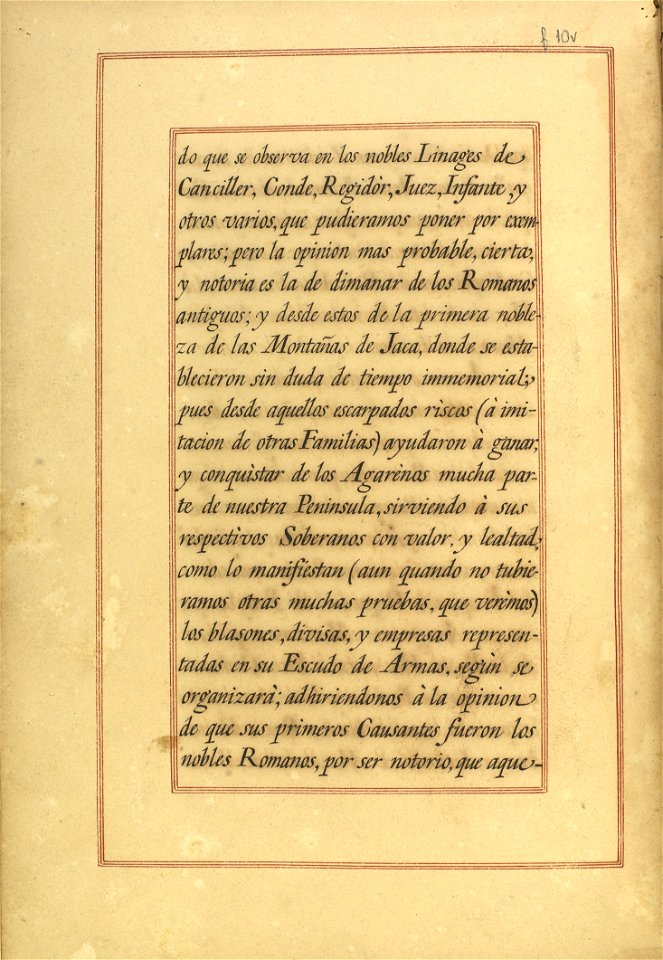 f 10v
do que se observa en los nobles Linages de
Canciller, Conde, Regidòr, Juez, Infante, y
otros varios, que pudieramos poner por exem-
plares; pero la opinion mas probable, cierta,
y notoria es la de dimanar de los Romanos
antiguos; y desde estos de la primera noble-
za de las Montañas de Jaca, donde se esta-
blecieron sin duda de tiempo immemorial;
pues desde aquellos escarpados rìscos (à imi-
tacion de otras Familias) ayudaron à ganar,
y conquistar de los Agarènos mucha par-
te de nuestra Peninsula, sirviendo à sus
respectivos Soberanos con valor, y lealtad;
como lo manifiestan (aun quando no tubie-
ramos otras muchas pruebas, que verèmos)
los blasones, divisas, y empresas represen-
tadas en su Escudo de Armas, segùn se
organizarà; adhiriendonos à la opinion
de que sus primeros Causantes fueron los
nobles Romanos, por ser notorio, que aque-